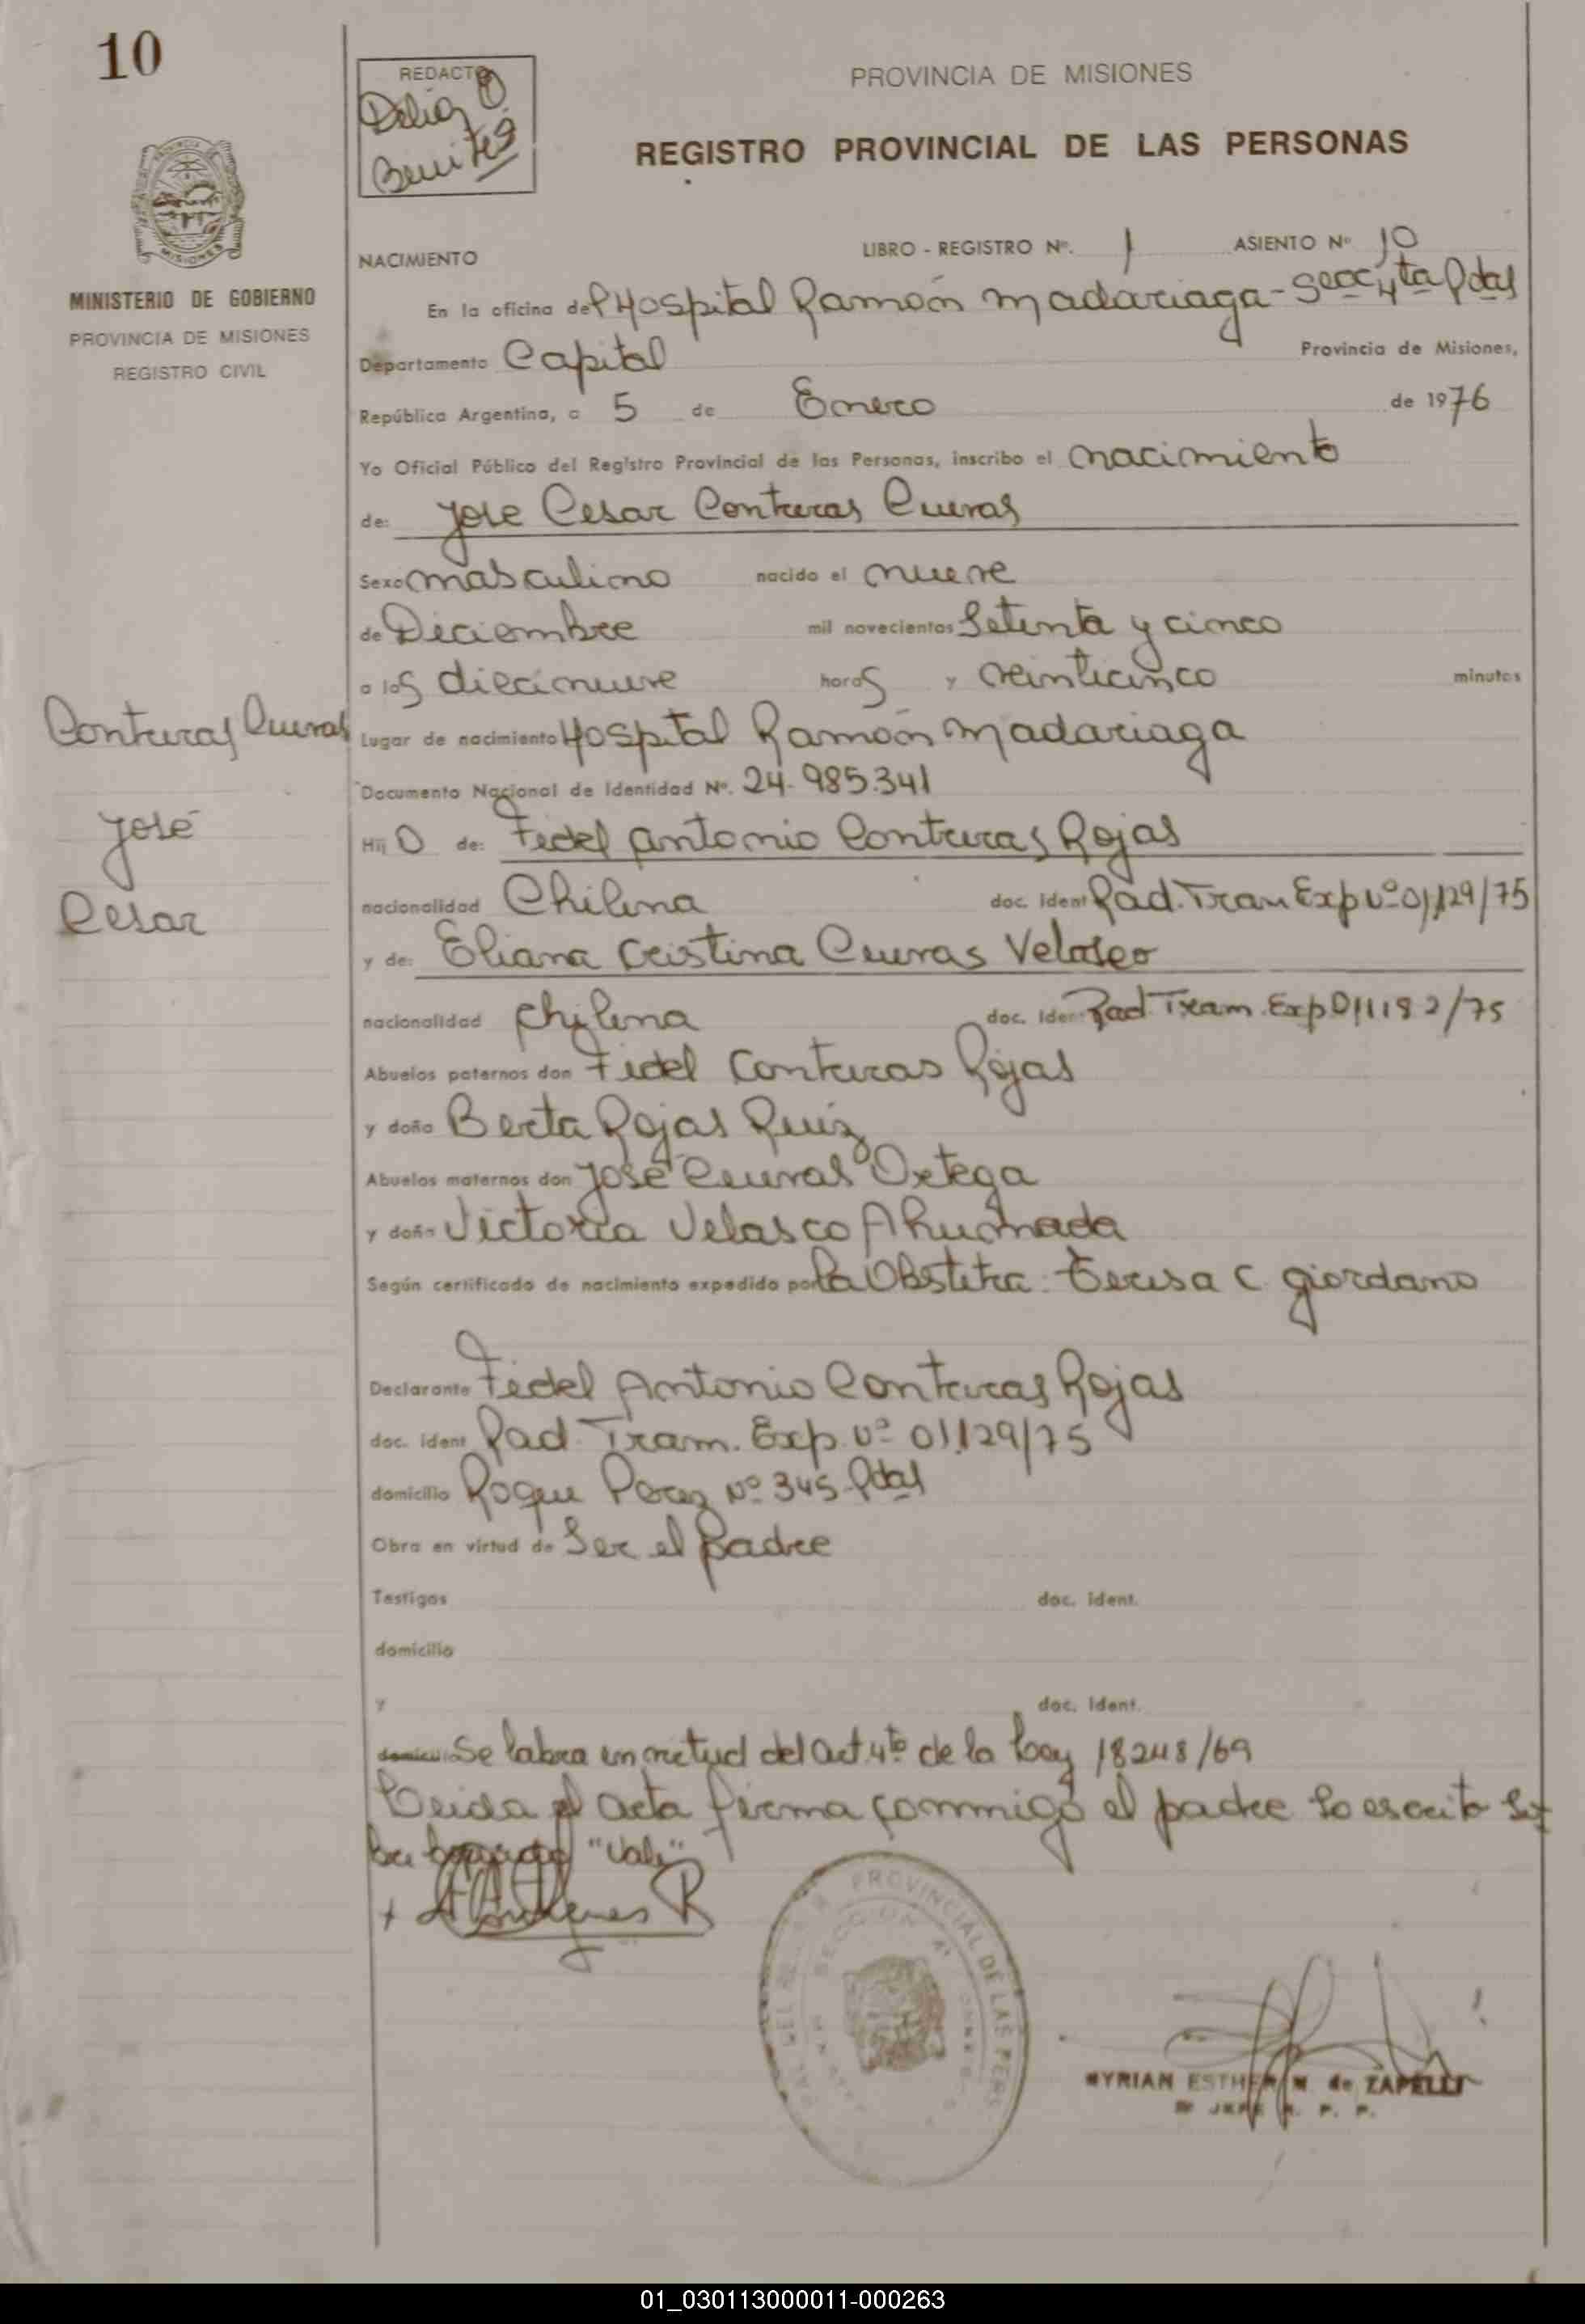 10
REDACTO
Delia B
Benites
PROVINCIA DE MISIONES
REGISTRO PROVINCIAL DE LAS PERSONAS
MINISTERIO DE GOBIERNO
PROVINCIA DE MISIONES
REGISTRO CIVIL
NACIMIENTO LIBRO - REGISTRO Nº. 1 ASIENTO Nº 10
En la oficina del Hospital Ramón Madariaga - Secc 4ta Pdas
Departamento Capital Provincia de Misiones,
República Argentina, a 5 de Enero de 1976
Yo Oficial Público del Registro Provincial de las Personas, inscribo el nacimiento
de: Jose Cesar Contreras Cuevas
Sexo masculino nacido el nueve
de Diciembre mil novecientos Setenta y cinco
a los diecinueve horas y veinticinco minutos
Contreras Cuevas
José
Cesar
Lugar de nacimiento Hospital Ramón Madariaga
Documento Nacional de Identidad Nº. 24.985.341
Hijo de: Fidel Antonio Contreras Rojas
nacionalidad Chilena doc. ident Rad. Tram Exp Nº 01129/75
y de: Eliana Cristina Cuevas Velasco
nacionalidad Chilena doc. ident Rad. Tram. Exp 011182/75
Abuelos paternos don Fidel Contreras Rojas
y doña Berta Rojas Ruiz
Abuelos maternos don José Cuevas Ortega
y doña Victoria Velasco Ahumada
Según certificado de nacimiento expedido por la Obstetra. Teresa C. Giordano
Declarante Fidel Antonio Contreras Rojas
doc. ident Rad. Tram. Exp. Nº 01129/75
domicilio Roque Perez Nº 345 Pdas
Obra en virtud de Ser el padre
Testigos doc. ident.
domicilio
y doc. ident.
Se labra en virtud del Art. 4to de la Ley 18248/69
Leida el acta firma conmigo el padre lo escrito so
bre borrado "Vale"
PROVINCIAL DE LAS PERS
SECCION 4ª
MYRIAN ESTHER M de ZAPELLI
JEFE R. P. P.
01_030113000011-000263